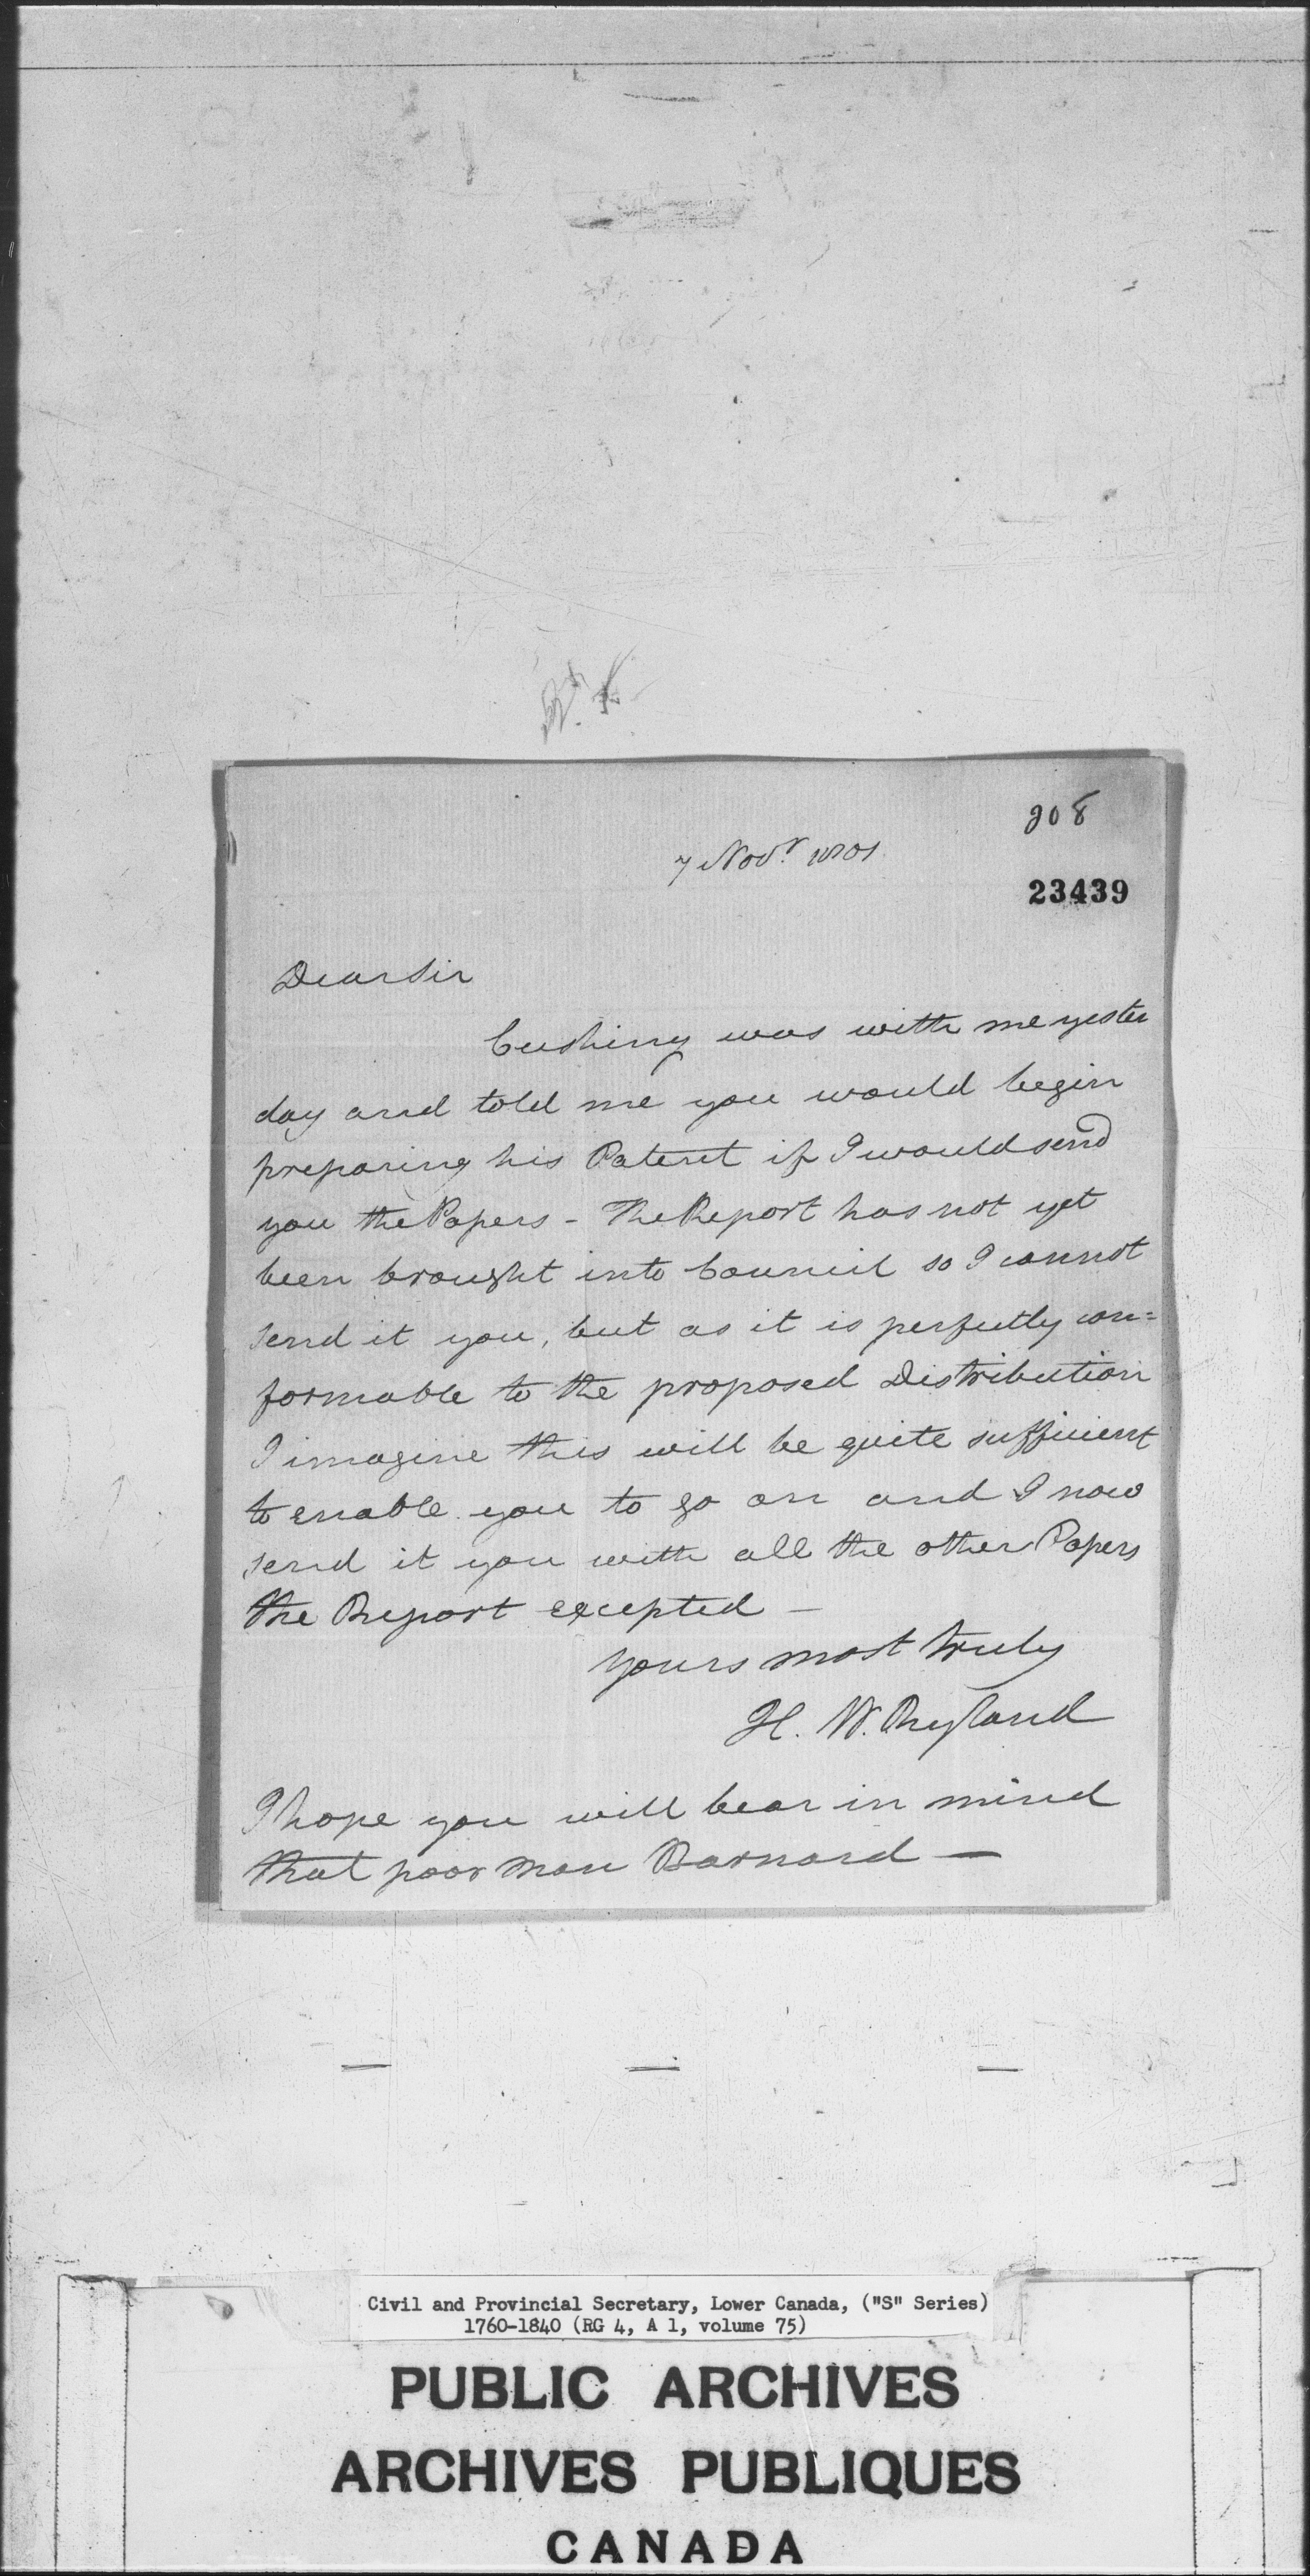 208
7 Novr. 1801
23439
Dear Sir
Cushing was with me yester
day and told me you would begin
preparing his Patent if I would send
you the Papers - The Report has not yet
been brought into Council so I cannot
send it you, but as it is perfectly con=
formable to the proposed Distribution
I imagine this will be quite sufficient
to enable you to go on and I now
send it you with all the other Papers
the Report excepted —
Yours most truly
H. W. Ryland
I hope you will bear in mind
that poor man Barnard —
Civil and Provincial Secretary, Lower Canada, ("S" Series)
1760-1840 (RG 4, A 1, volume 75)
PUBLIC ARCHIVES
ARCHIVES PUBLIQUES
CANADA